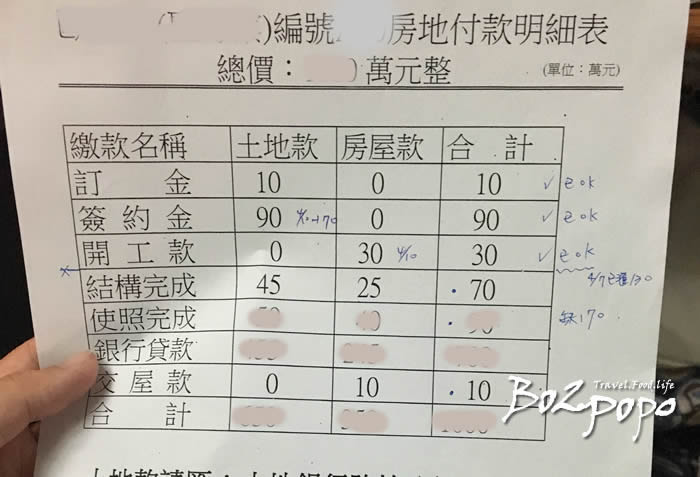 編號 房地付款明細表
總價： 萬元整 (單位：萬元)
繳款名稱 土地款 房屋款 合 計
訂 金 10 0 10 ✓ 已ok
簽約金 90 0 90 ✓ 已ok
開工款 0 30 4/10 30 ✓ 已ok
結構完成 45 25 ·70 4/7已匯130
使照完成 缺170
銀行貸款
交屋款 0 10 ·10
合 計
Travel.Food.life
Bo2popo